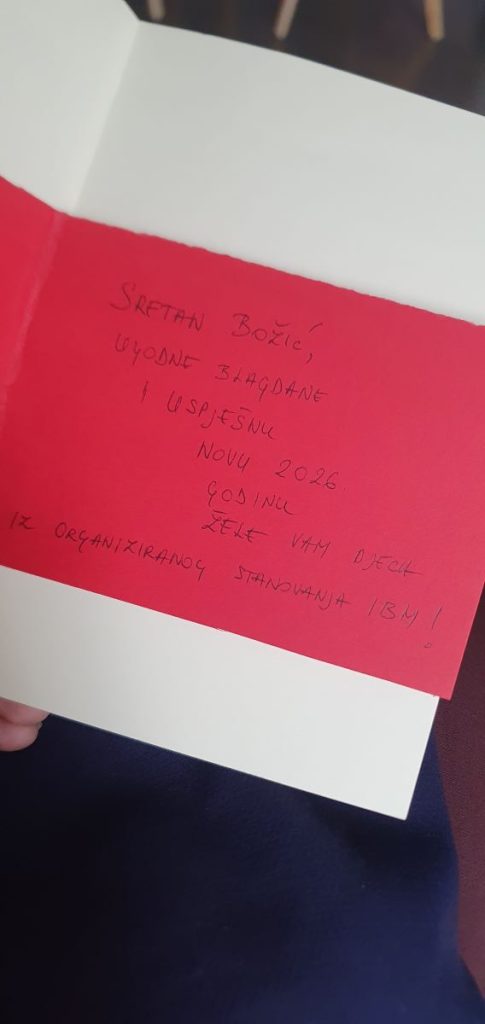 SRETAN BOŽIĆ,
UGODNE BLAGDANE
I USPJEŠNU
NOVU 2026.
GODINU
ŽELE VAM DJECA
IZ ORGANIZIRANOG STANOVANJA IBM!